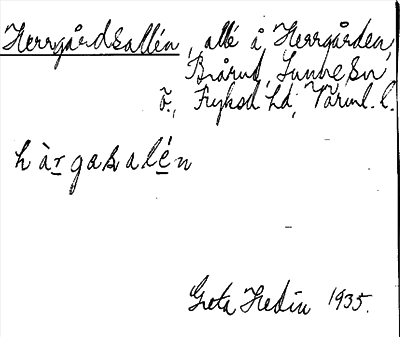 Herrgårdsallén, allé å Herrgården,
Brårud, Sunne sn
Ö., Fryksd. hd, Värml. l.
hàrgasalén
Greta Hedin 1935.